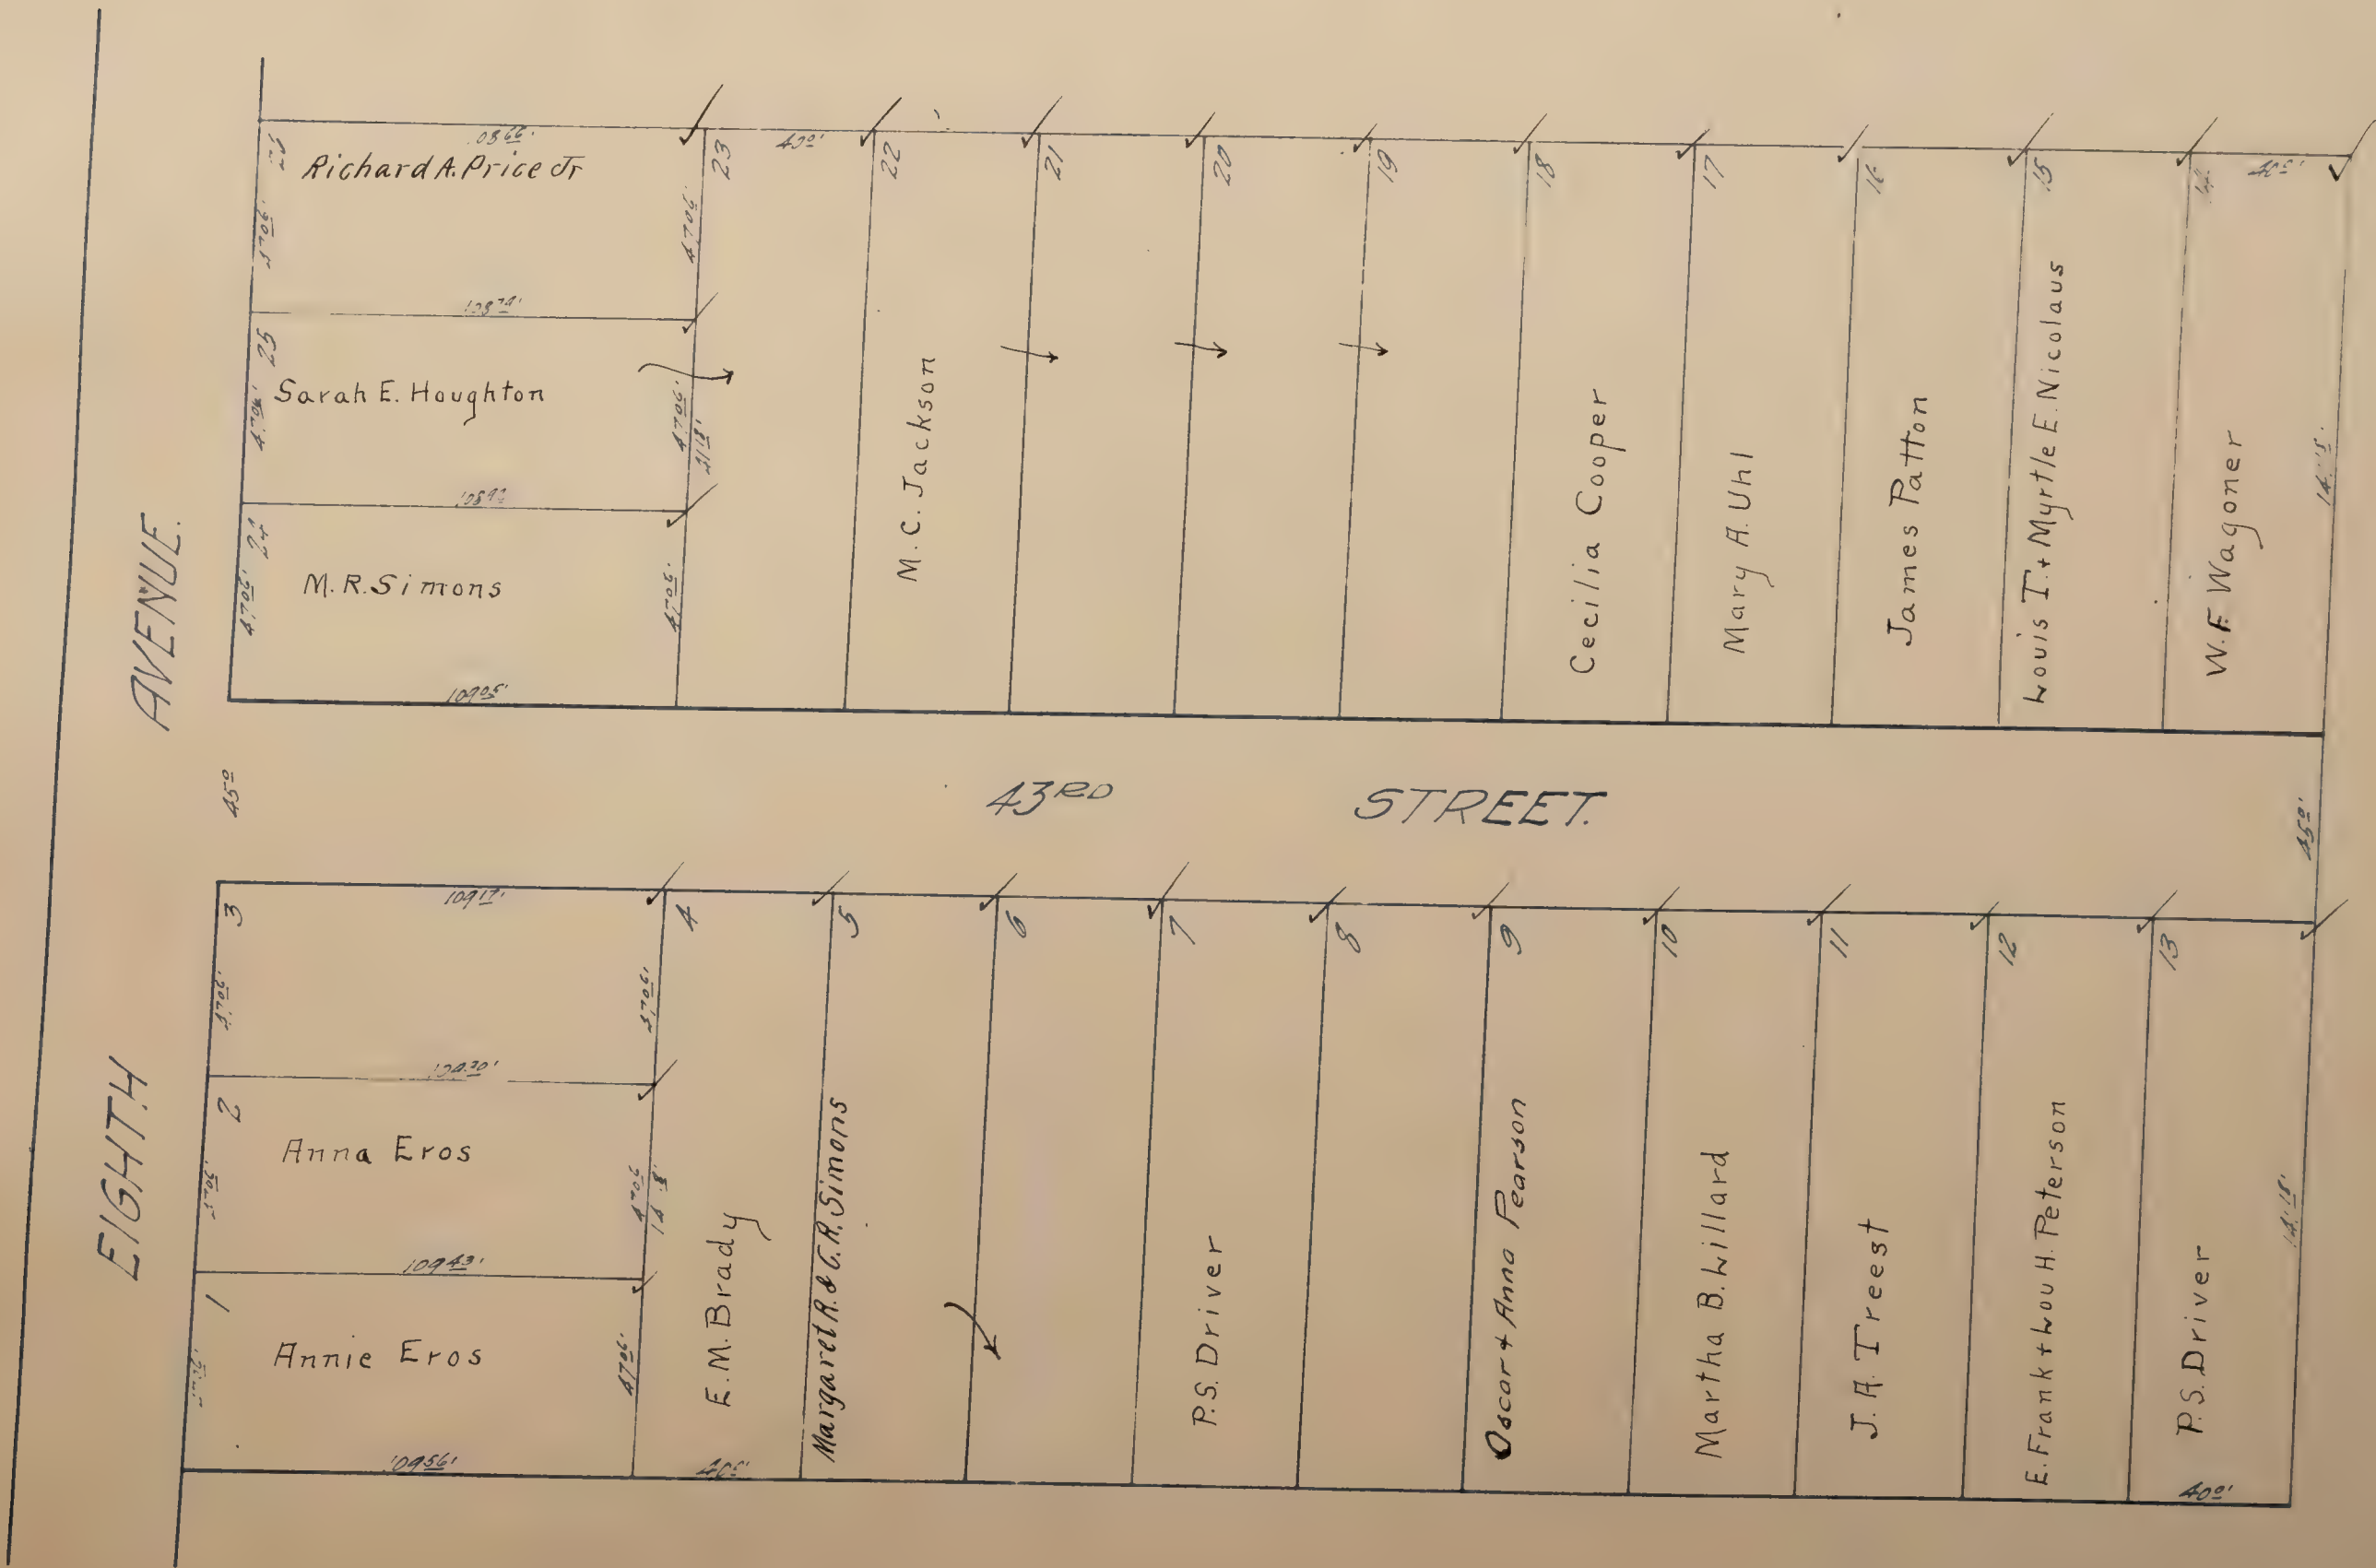 AVENUE.
EIGHTH
Richard A. Price Jr
47.06'
25
108.79'
47.06'
Sarah E. Houghton
47.06'
24
108.92'
47.06'
M.R. Simons
47.06'
47.06'
109.05'
23
40.0'
22
M. C. Jackson
21
20
19
18
Cecilia Cooper
17
Mary A. Uhl
16
James Patton
15
Louis T. + Myrtle E. Nicolaus
14
40.0'
W. F. Wagoner
45.0
43RD STREET.
45.0'
3
109.17'
47.06'
47.06'
2
109.30'
Anna Eros
47.06
1
109.43'
Annie Eros
47.06'
109.56'
4
E. M. Brady
40.0'
5
Margaret R. & G. R. Simons
6
7
P.S. Driver
8
9
Oscar + Anna Pearson
10
Martha B. Lillard
11
J. A. Treest
12
E. Frank + Lou H. Peterson
13
P.S. Driver
141.18'
40.0'